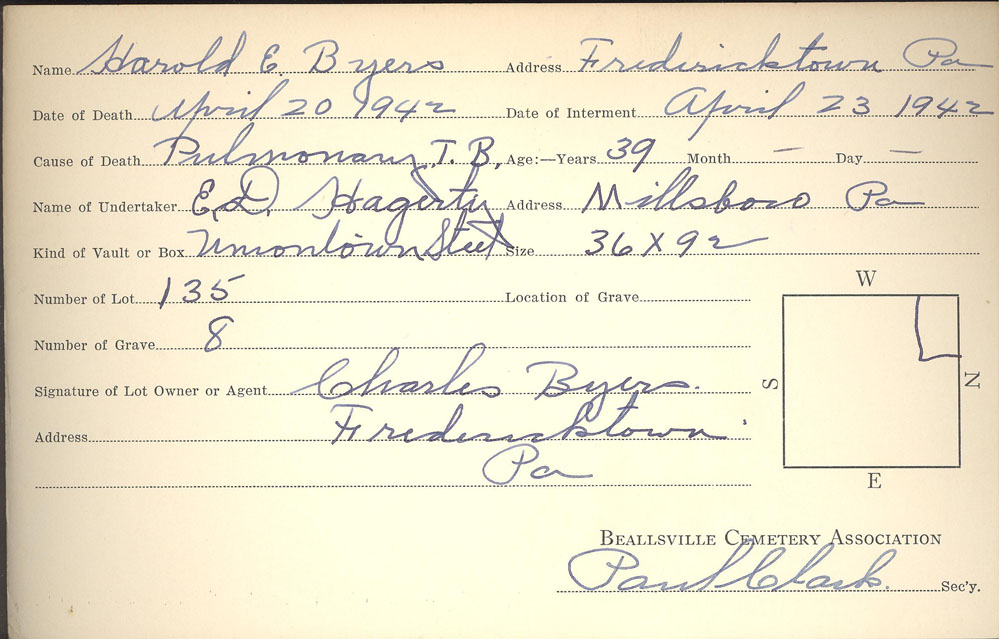 Name Harold E. Byers Address Fredericktown Pa
Date of Death April 20 1942 Date of Interment April 23 1942
Cause of Death Pulmonary T. B. Age:—Years 39 Month — Day —
Name of Undertaker E. D. Hagerty Address Millsboro Pa
Kind of Vault or Box Uniontown Steel Size 36 X 92
Number of Lot 135 Location of Grave
W
Number of Grave 8
Signature of Lot Owner or Agent Charles Byers.
S N
Address Fredericktown
Pa
E
BEALLSVILLE CEMETERY ASSOCIATION
Paul Clark. Sec'y.